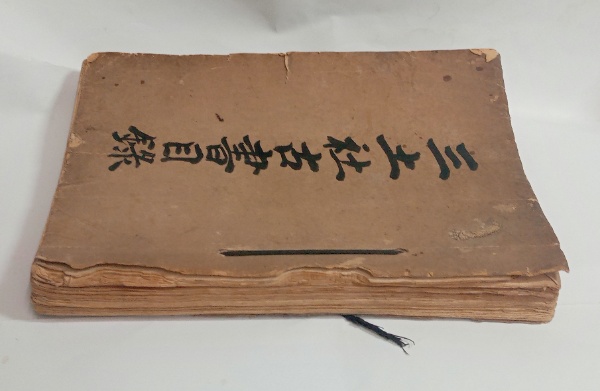 三土社古書目錄